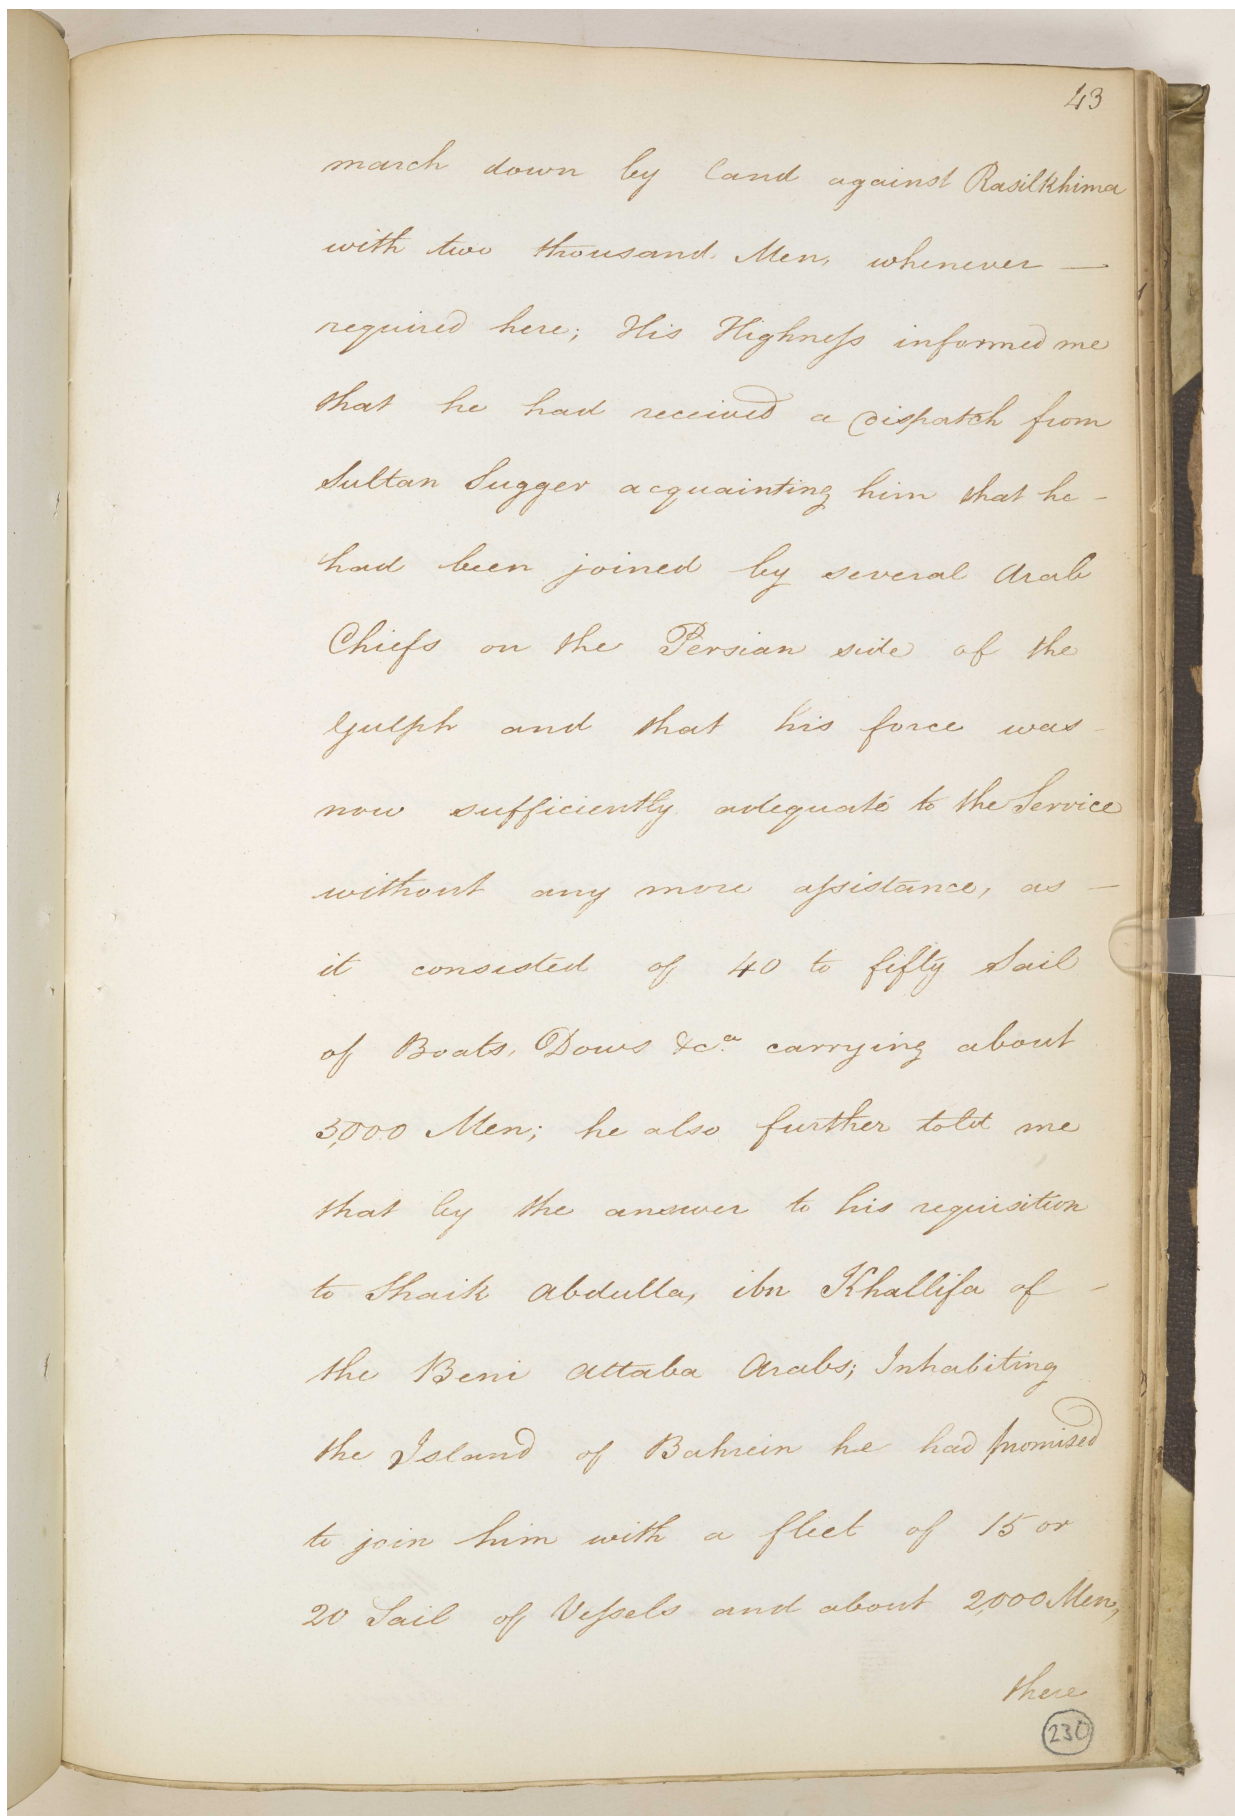 43
march down by land against Rasilkhima
with two thousand Men, whenever —
required here; His Highneſs informed me
that he had received a Dispatch from
Sultan Sugger acquainting him that he -
had been joined by several Arab
Chiefs on the Persian side of the
Gulph and that his force was -
now sufficiently adequate to the Service
without any more aſsistance, as —
it consisted of 40 to fifty Sail
of Boats, Dows &c.a carrying about
3,000 Men; he also further told me
that by the answer to his requisition
to Shaik Abdulla, ibn Khallifa of -
the Beni Attaba Arabs; Inhabiting
the Island of Bahrein he had promised
to join him with a fleet of 15 or
20 Sail of Veſsels and about 2,000 Men,
there
230